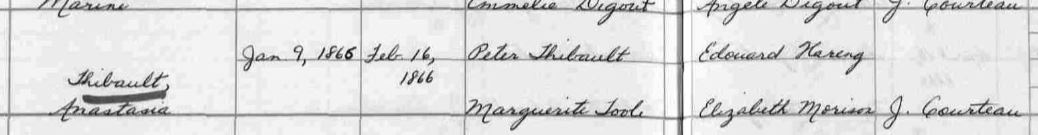 Marine Emmelie Digout Angele Digout J. Courteau
Jan 9, 1866 Feb. 16, Peter Thibault Edouard Hareng
Thibault, 1866
Anastasia Marguerite Toole Elizabeth Morison J. Courteau